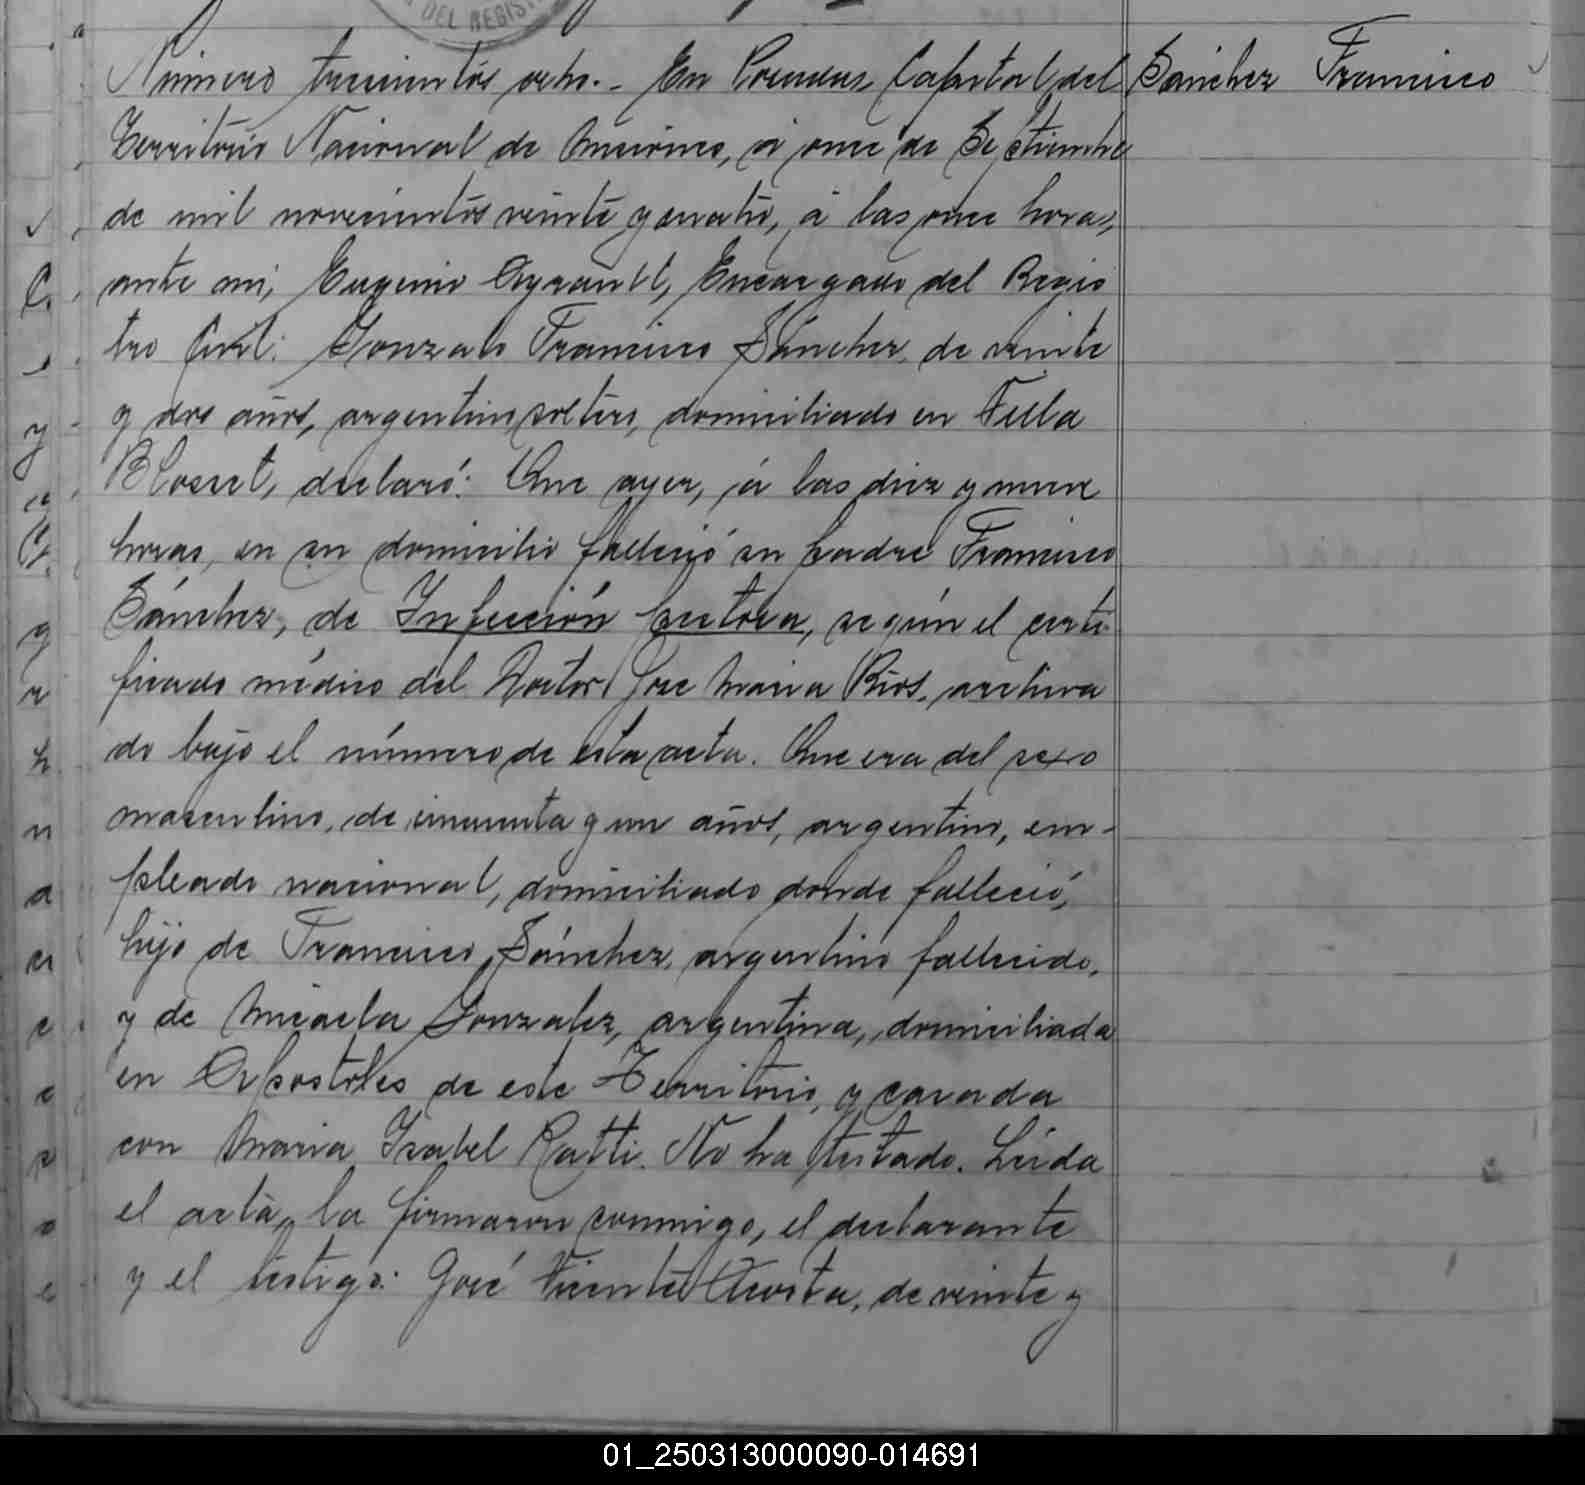 DEL REGIS
Número trescientos ocho.- En Posadas, Capital del
Sánchez Francisco
Territorio Nacional de Misiones, á once de Septiembre
de mil novecientos veinte y cuatro, á las once horas,
ante mi, Eugenio Ayrault, Encargado del Regis
tro Civil: Gonzalo Francisco Sánchez, de veinte
y dos años, argentino, soltero, domiciliado en Villa
Blosset, declaró: Que ayer, á las diez y nueve
horas, en su domicilio falleció su padre Francisco
Sánchez, de Infección puetora, según el certi
ficado médico del Doctor José Maria Rios, archiva
do bajo el número de esta acta. Que era del sexo
masculino, de cincuenta y un años, argentino, em-
pleado nacional, domiciliado donde falleció,
hijo de Francisco Sánchez, argentino fallecido,
y de Micaela Gonzalez, argentina, domiciliada
en Apostoles de este Territorio, y casada
con Maria Isabel Ratti. No ha testado. Leida
el acta, la firmaron conmigo, el declarante
y el testigo: José Vicente Acosta, de veinte y
01_250313000090-014691